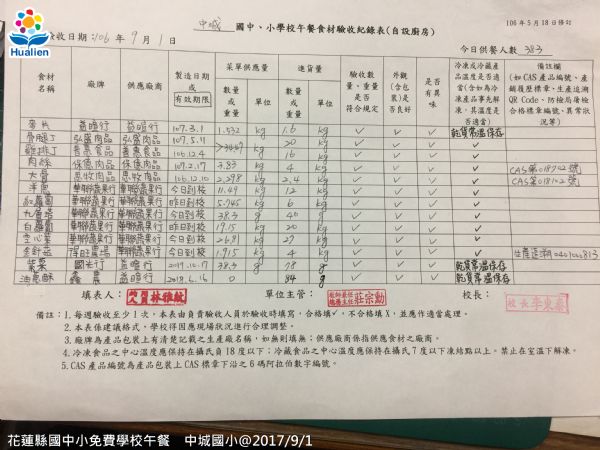 Hualien
中城 國中、小學校午餐食材驗收紀錄表(自設廚房)
106年5月18日修訂
驗收日期:106年9月1日
今日供餐人數 383
食材名稱 廠牌 供應廠商 製造日期或有效期限 菜單供應量 進貨量 驗收數量、重量是否符合規定 外觀(含包裝)是否良好 是否有異味 冷凍或冷藏產品溫度是否適當(含如為冷凍產品事先解凍,其溫度是否適當) 備註欄(如CAS產品編號、產銷履歷標章、生產追溯QR Code、防檢局藥檢合格標章編號、異常狀況等)
數量或重量 單位 數量或重量 單位
益暄行 107.3.1 1.532 kg 1.6 kg ✓ ✓ ✓ 乾貨常溫保存
骨腿丁 弘盛肉品 弘盛肉品 107.5.11 20 kg ✓ ✓ ✓ ✓
雞排丁 106.12.4 16 kg ✓ ✓ ✓ ✓
肉絲 保億肉品 保億肉品 107.2.17 3.83 kg 4 kg ✓ ✓ ✓ ✓ CAS第018702號
大骨 思牧肉品 思牧肉品 106.12.10 2.298 kg 2.4 kg ✓ ✓ ✓ ✓ CAS第018102號
洋蔥 華聯蔬果行 華聯蔬果行 今日到校 11.49 kg 12 kg ✓ ✓ ✓ ✓
紅蘿蔔 華聯蔬果行 華聯蔬果行 昨日到校 5.745 kg 6 kg ✓ ✓ ✓ ✓
九層塔 華聯蔬果行 華聯蔬果行 今日到校 38.3 g 40 g ✓ ✓ ✓ ✓
白蘿蔔 華聯蔬果行 華聯蔬果行 昨日到校 19.15 kg 20 kg ✓ ✓ ✓ ✓
空心菜 華聯蔬果行 華聯蔬果行 今日到校 26.81 kg 27 kg ✓ ✓ ✓ ✓
金針菇 華聯蔬果行 今日到校 1.915 kg 4 kg ✓ ✓ ✓ ✓
紫菜 益暄行 2019.10.17 38.3 g 78 g ✓ ✓ ✓ 乾貨常溫保存
油蔥酥 益暄行 2018.6.16 0 84 g ✓ ✓ ✓ 乾貨常溫保存
填表人: 林雅敏 單位主管: 莊宗勳 校長: 校長李東泰
備註:1.每週驗收至少1次,本表由負責驗收人員於驗收時填寫,合格填✓,不合格填X,並應作適當處理。
2.本表係建議格式,學校得因應現場狀況進行合理調整。
3.廠牌為產品包裝上有清楚記載之生產廠名稱,如無則填無;供應廠商係指供應食材之廠商。
4.冷凍食品之中心溫度應保持在攝氏負18度以下;冷藏食品之中心溫度應保持在攝氏7度以下凍結點以上。禁止在室溫下解凍。
5.CAS產品編號為產品包裝上CAS標章下沿之6碼阿拉伯數字編號。
花蓮縣國中小免費學校午餐 中城國小@2017/9/1